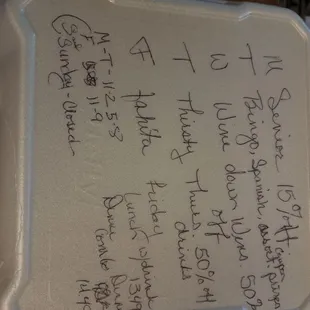 M Senior 15% off
T Bingo, Spanish,
W Wine down Wens. 50%
off
T Thirsty Thurs. 50% off
drinks
F Fahita Friday
Lunch w/drink
1349
Combo
M-T-11-2 5-8
F 11-9
Sunday-Closed-